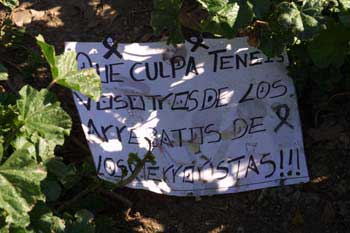 QUE CULPA TENEIS
VOSOTROS DE LOS
ARREBATOS DE
LOS TERRORISTAS!!!